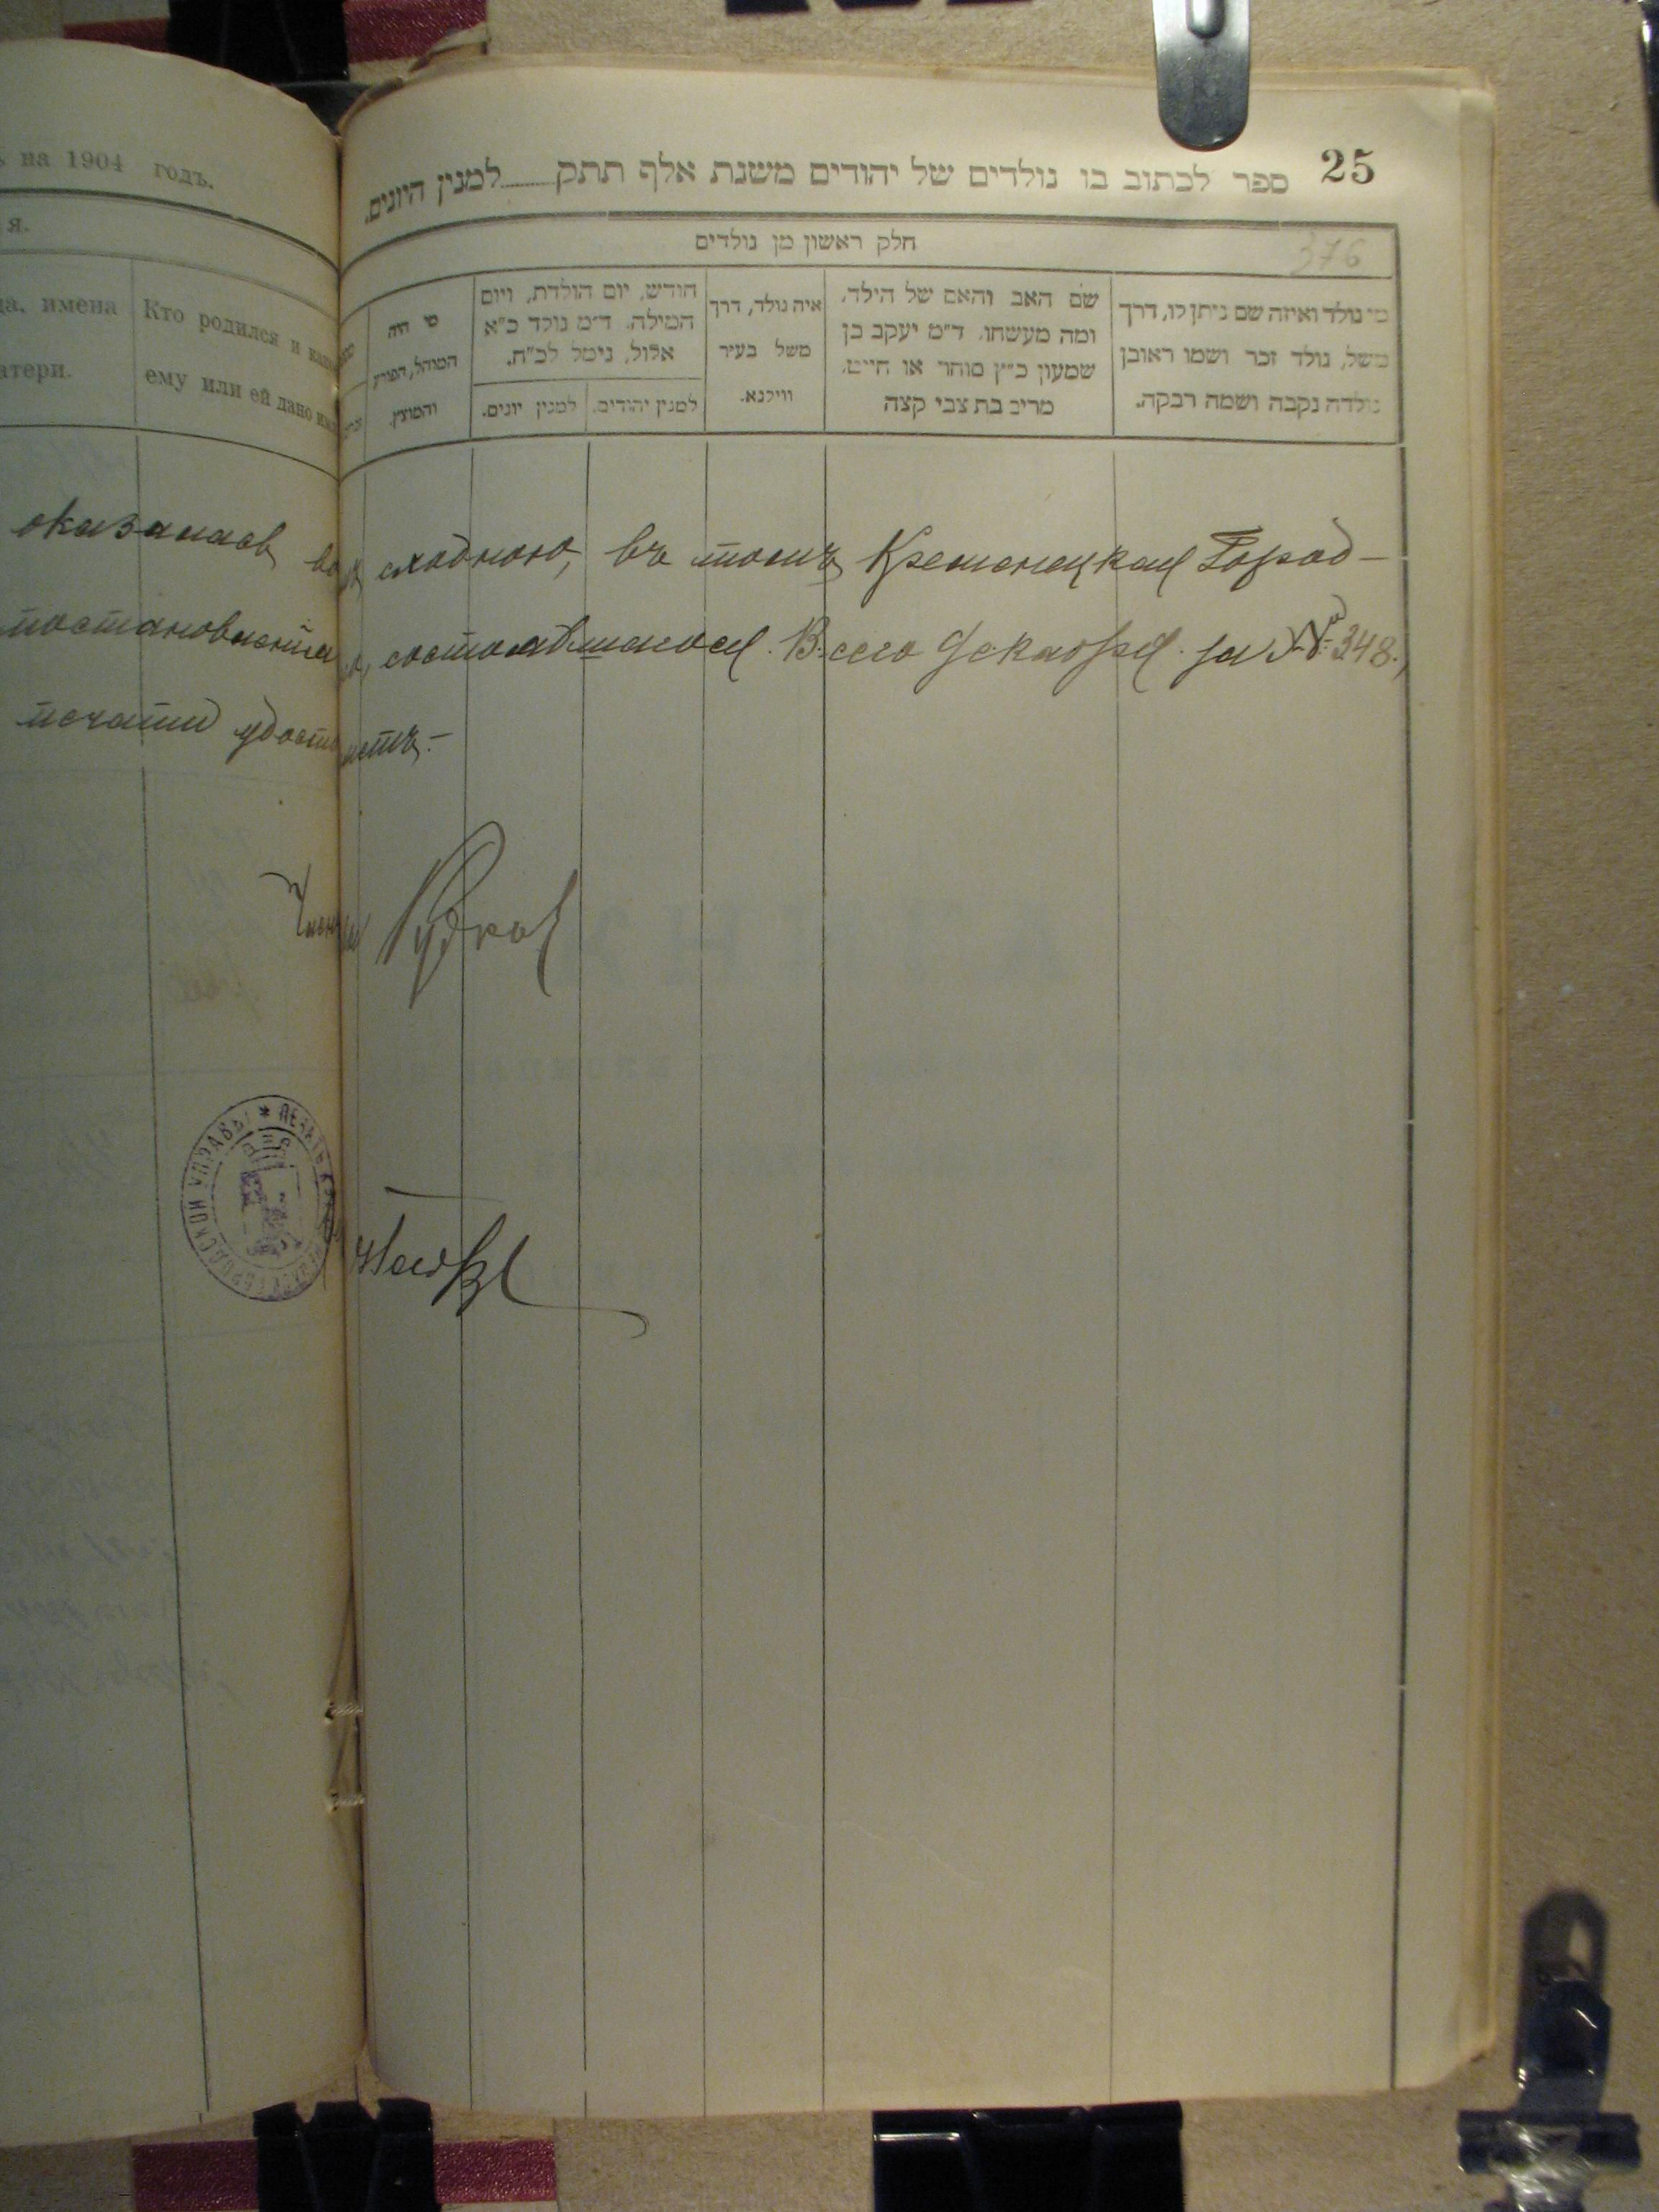 на 1904 годъ.
я.
имена
атери.
Кто родился и како
ему или ей дано имя
25
ספר לכתוב בו נולדים של יהודים משנת אלף תתק למנין היונים.
376
חלק ראשון מן נולדים
מי נולד ואיזה שם ניתן לו, דרך
משל, נולד זכר ושמו ראובן
נולדה נקבה ושמה רבקה.
שם האב והאם של הילד,
ומה מעשהו, ד״מ יעקב בן
שמעון כ״ץ סוחר או חייט,
מרים בת צבי קצה
איה נולד, דרך
משל בעיר
ווילנא.
חודש, יום הולדת, ויום
המילה, ד״מ נולד כ״א
אלול, נימל לכ״ח.
למנין יהודים.
למנין יונים.
מי היה
המוהל, הפורע
והמוצץ.
оказалась сходною, въ томъ Кременецкая Город-
состоявшагося 13. сего Декабря за № 348.,
печати
Членъ